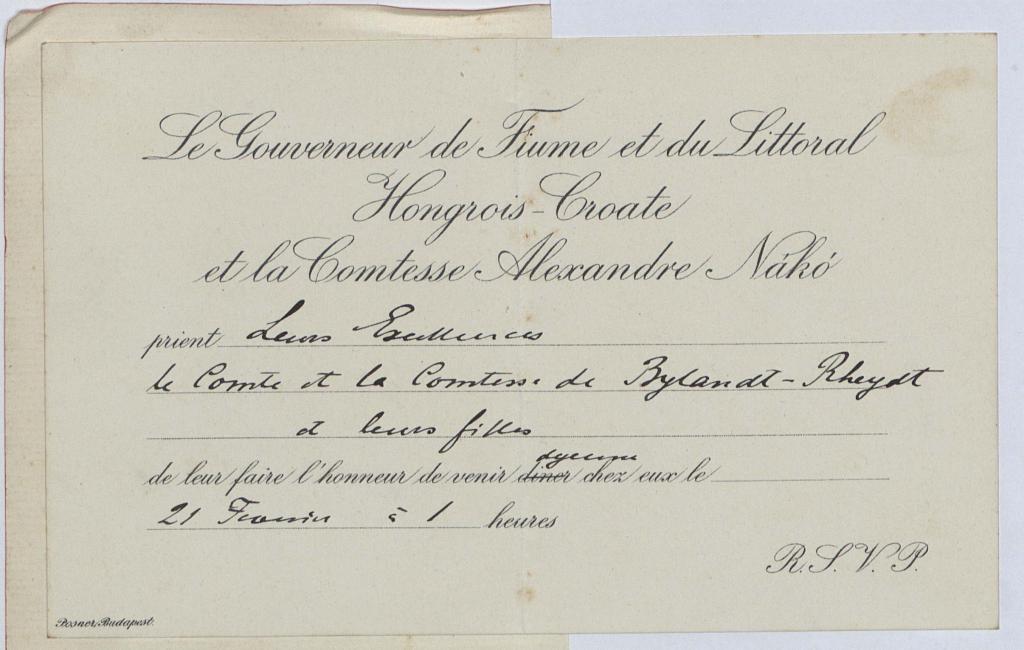 Le Gouverneur de Fiume et du Littoral
Hongrois-Croate
et la Comtesse Alexandre Nákó
prient Leurs Excellences
le Comte et la Comtesse de Bylandt-Rheydt
et leurs filles
de leur faire l'honneur de venir diner chez eux le
21 à 1 heures
R. S. V. P.
Posner, Budapest.